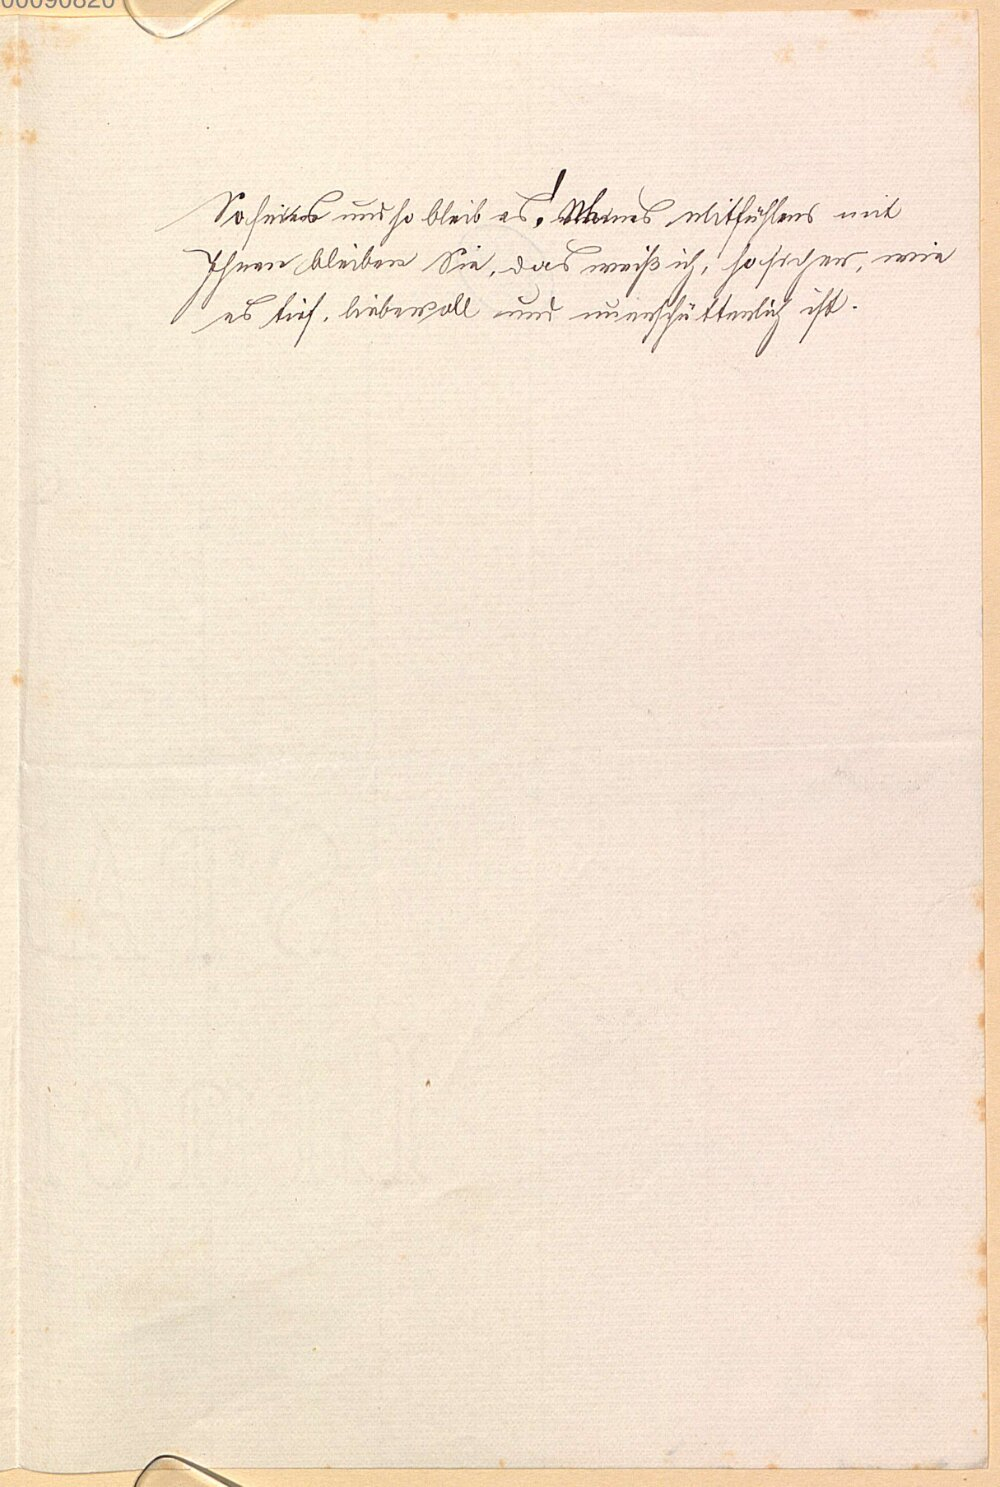 00090820
So sei es und so bleib es! Meines Mitfühlens mit
Ihnen bleiben Sie, das weiß ich, so sicher, wie
es tief, liebevoll und unerschütterlich ist.